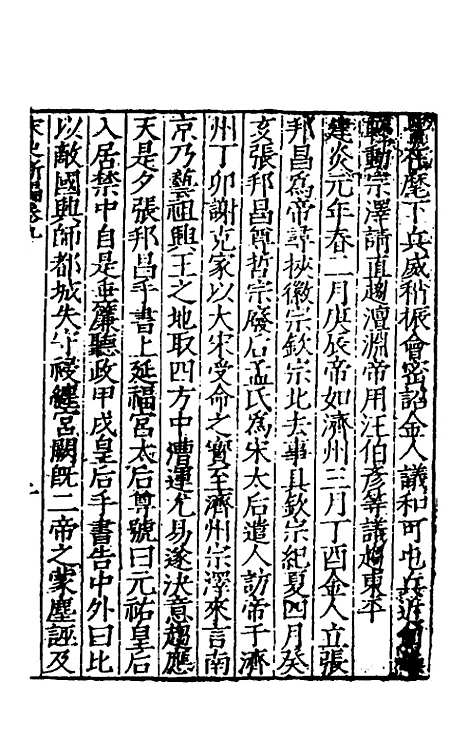 往麾下兵威稍振會密詔金人議和可也兵近
輒動宗澤請直趨澶淵帝用汪伯彥等議趨東平
建炎元年春二月庚辰帝如濟州三月丁酉金人立張
邦昌爲帝尋挾徽宗欽宗北去事具欽宗紀夏四月癸
亥張邦昌尊哲宗廢后孟氏爲宋太后遣人訪帝于濟
州丁卯謝克家以大宋受命之寳至濟州宗澤來言南
京乃藝祖興王之地取四方中漕運尤易遂決意趨應
天是夕張邦昌手書上延福宮太后尊號曰元祐皇后
入居禁中自是垂簾聽政甲戌皇后手書告中外曰比
以敵國興師都城失守祲纏宮闕旣二帝之蒙塵誣及
宋史新編卷九